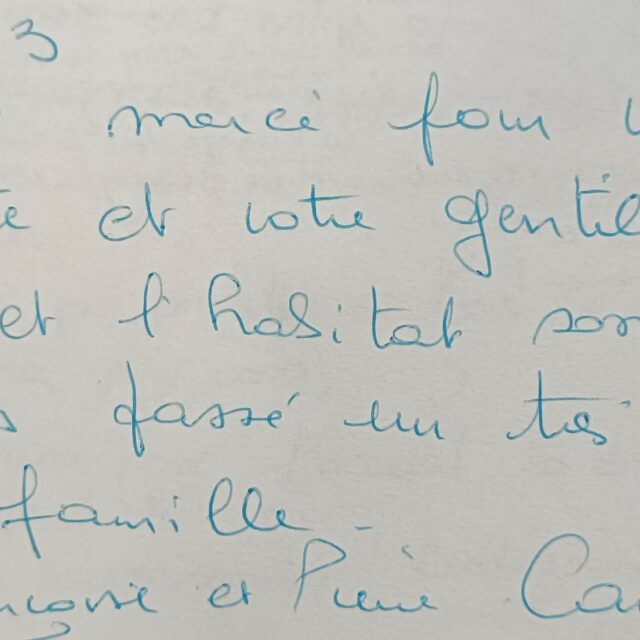 3
merci pour
et votre gentil
et l'habitat son
passé un très
famille -
et Pierre Ca